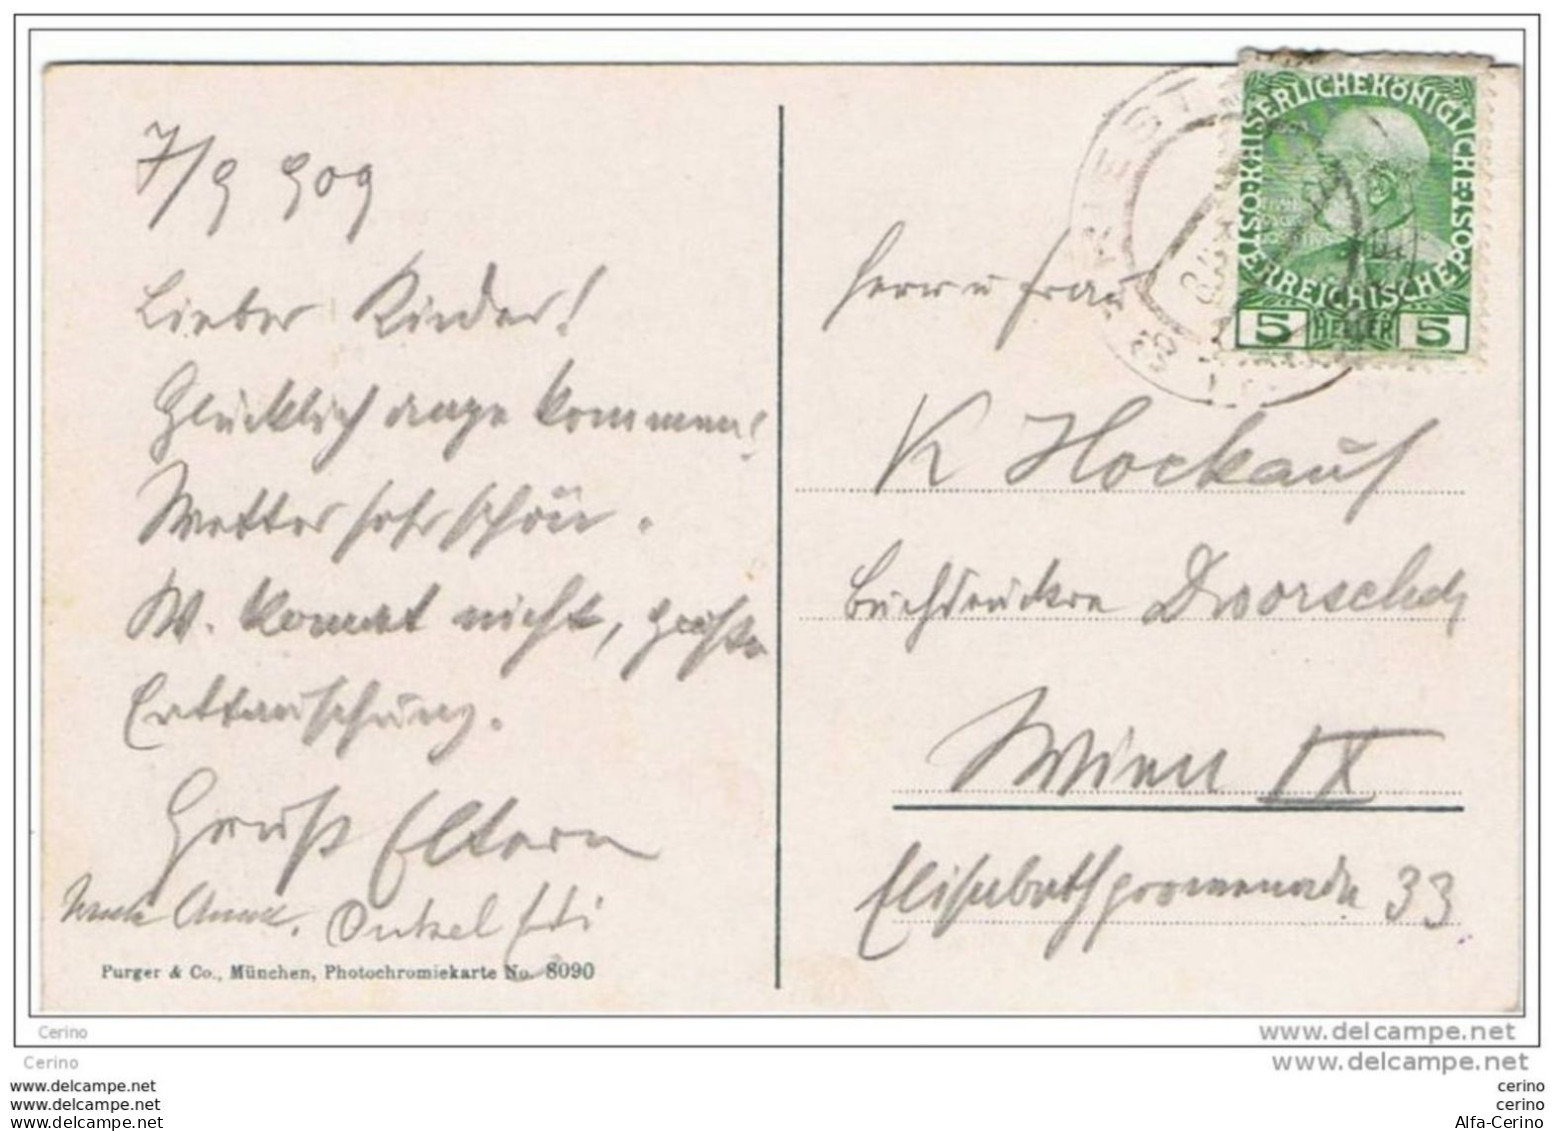 7/9 909
Lieber Kinder!
Glücklich angekommen!
Wetter sehr schön.
W. kommt nicht, große
Enttäuschung.
Gruß Eltern
Anna. Onkel
Purger & Co., München, Photochromiekarte No. 8090
TRIEST
KAISERLICHEKÖNIGLICHE
ÖSTERREICHISCHEPOST
5 HELLER 5
Herr u Frau
K Hockauf
Buchdruckere
Wien IX
Elisabethpromenade 33
Cerino
www.delcampe.net
Cerino
www.delcampe.net
www.delcampe.net
cerino
www.delcampe.net
cerino
www.delcampe.net
Alfa-Cerino